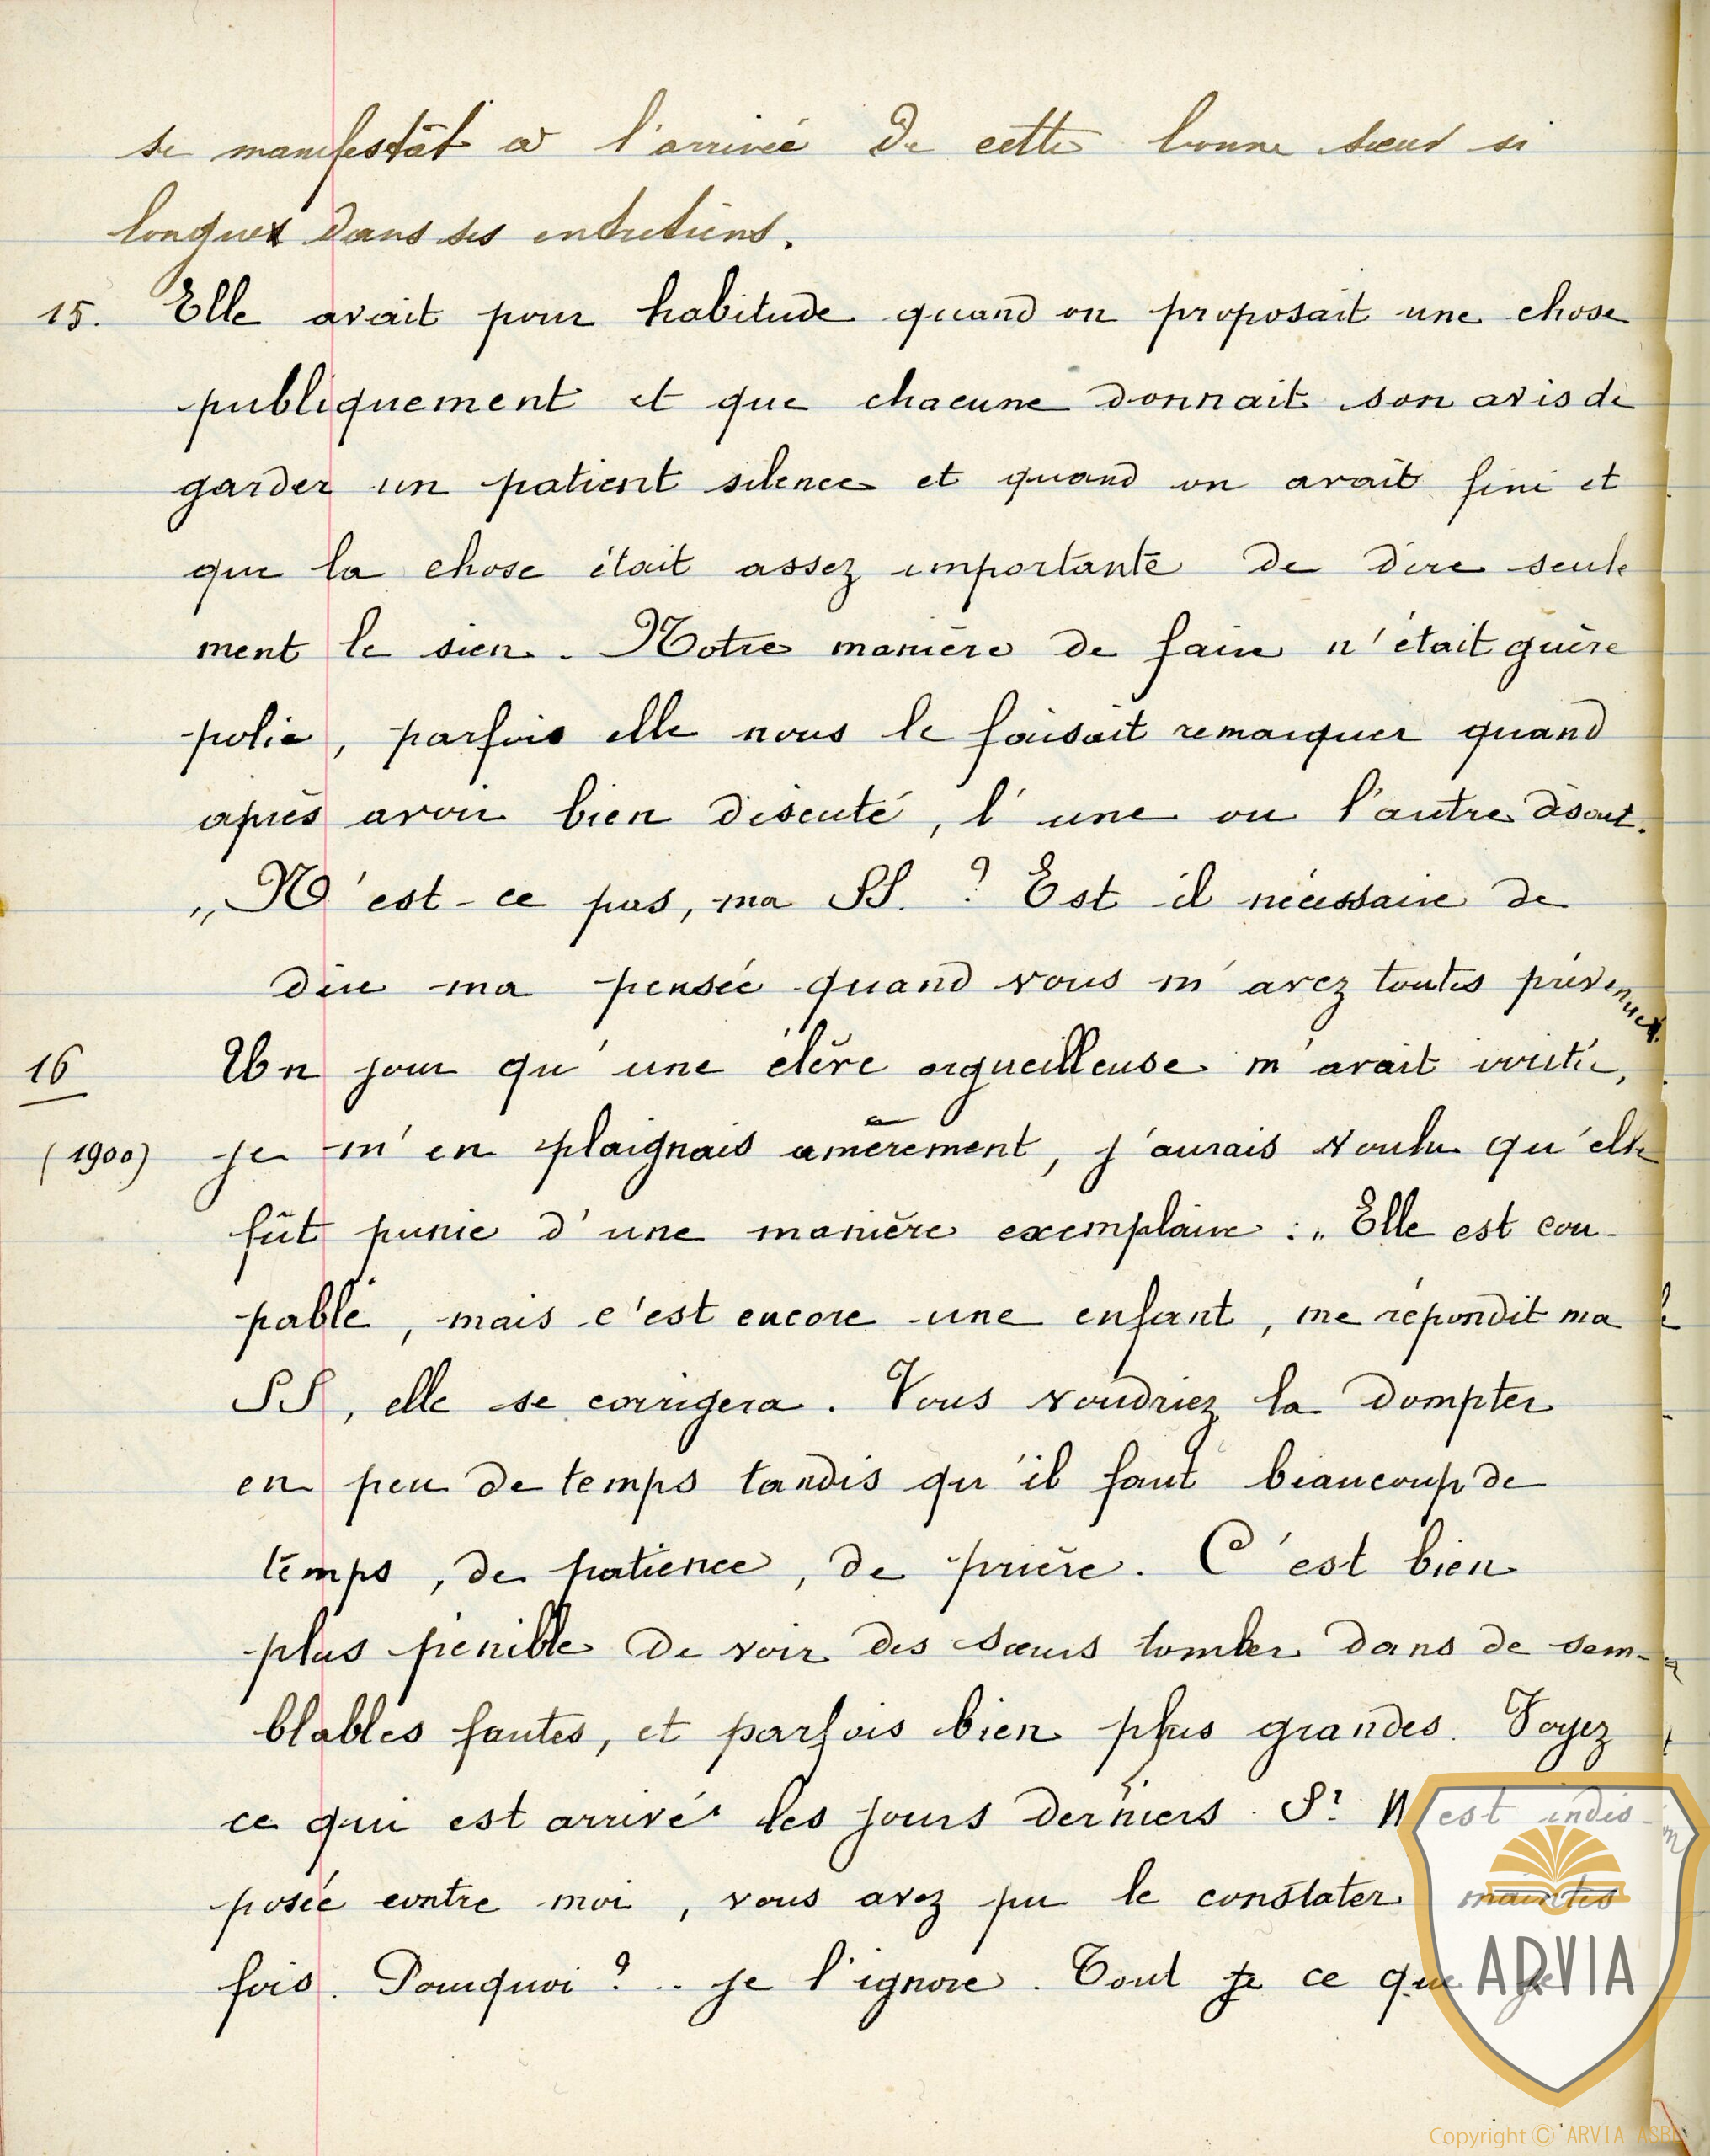 se manifestât à l'arrivée de cette bonne sœur si
longues dans ses entretiens.
15. Elle avait pour habitude quand on proposait une chose
publiquement et que chacune donnait son avis de
garder un patient silence et quand on avait fini et
que la chose était assez importante de dire seule
ment le sien. Notre manière de faire n'était guère
polie, parfois elle nous le faisait remarquer quand
après avoir bien discuté, l'une ou l'autre disait.
„N'est-ce pas, ma SS. ? Est il nécessaire de
dire ma pensée quand vous m'avez toutes prévenues.
16 Un jour qu'une élève orgueilleuse m'avait irritée,
(1900) je m'en plaignais amèrement, j'aurais voulu qu'elle
fût punie d'une manière exemplaire : „Elle est cou-
pable, mais c'est encore une enfant, me répondit ma
SS, elle se corrigera. Vous voudriez la dompter
en peu de temps tandis qu'il faut beaucoup de
temps, de patience, de prière. C'est bien
plus pénible de voir des sœurs tomber dans de sem-
blables fautes, et parfois bien plus grandes. Voyez
ce qui est arrivé les jours derniers. Sr N est indis-
posée contre moi, vous avez pu le constater maintes
fois. Pourquoi ? .. je l'ignore. Tout ce que je
ARVIA
Copyright © ARVIA ASBL